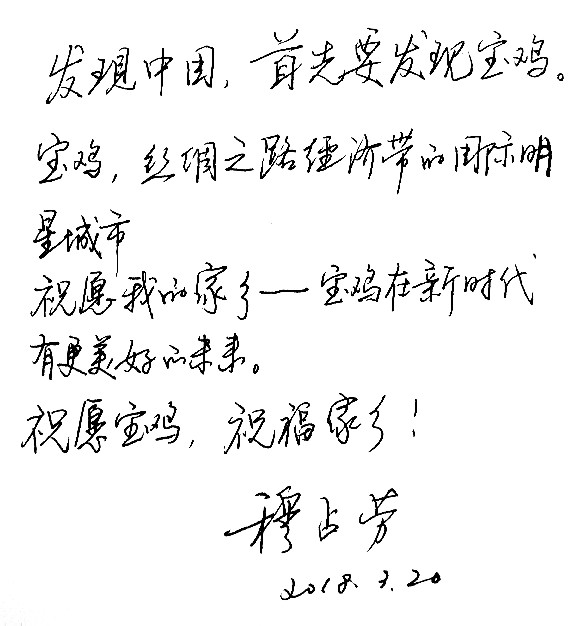 发現中国，首先要发现宝鸡。
宝鸡，丝绸之路经济带的国际明
星城市
祝愿我的家乡——宝鸡在新时代
有更美好的未来。
祝愿宝鸡，祝福家乡！
穆占劳
2018.3.20